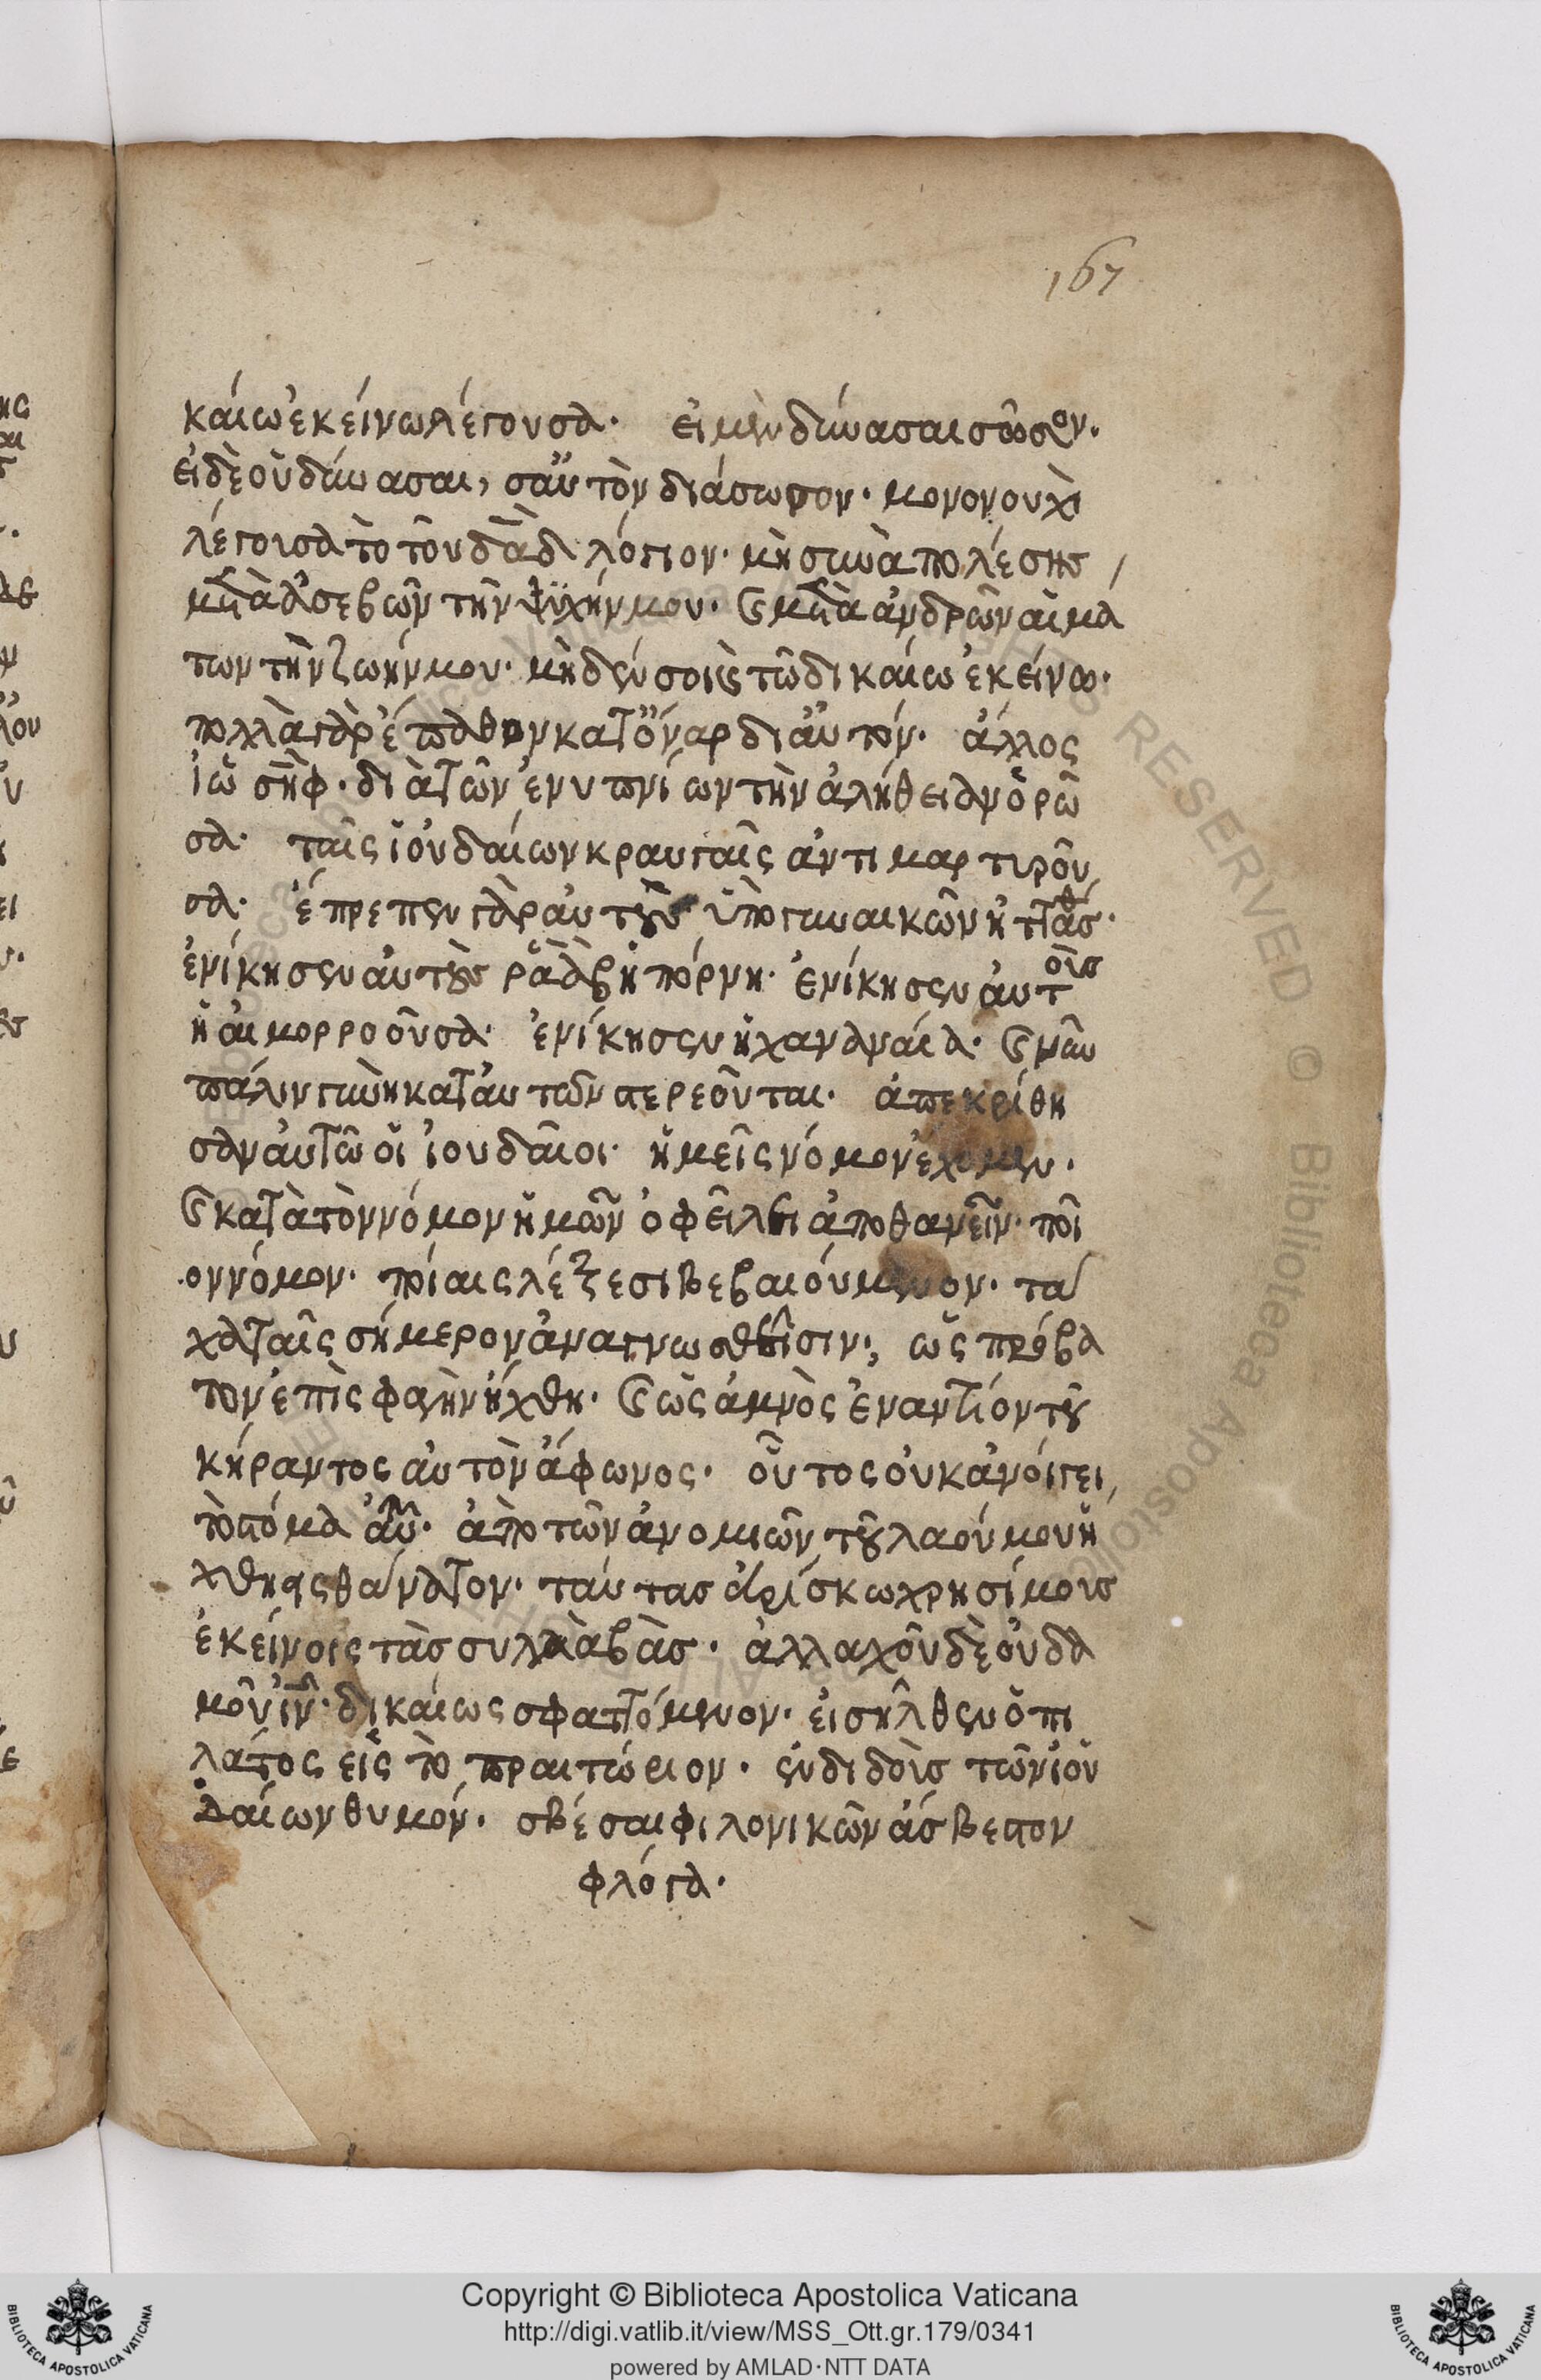 167
καίω ἐκείνω λέγουσα· εἰ μὲν δύνασαι σῶσον·
εἰ δὲ οὐ δύνασαι, σαὐτὸν διάσωσον· μονονουχὶ
λέγουσα τὸ τοῦ δᾱδ λόγιον· μὴ συναπολέσης
μετὰ ἀσεβῶν τὴν ψυχήν μου· καὶ μετὰ ἀνδρῶν αἱμά
των τὴν ζωήν μου· μηδέν σοι καὶ τῶ δικαίω ἐκείνω·
πολλὰ γὰρ ἔπαθον κατ' ὄναρ δι' αὐτόν· ἄλλος
ἰωσὴφ· διὰ τῶν ἐνυπνίων τὴν ἀλήθειαν ὁρῶ
σα· ταῖς ἰουδαίων κραυγαῖς ἀντιμαρτυροῦ
σα· ἔπρεπεν γὰρ αὐτοὺς ὑπὸ γυναικῶν ἡττᾶσθ·
ἐνίκησεν αὐτοὺς ῥαὰβ ἡ πόρνη· ἐνίκησεν αὐτοὺς
ἡ αἱμορροοῦσα· ἐνίκησεν ἡ χαναναία· καὶ νῦν
πάλιν γυνὴ κατ' αὐτῶν στερεοῦται· ἀπεκρίθη
σαν αὐτῶ οἱ ἰουδαῖοι· ἡμεῖς νόμον ἔχομεν·
καὶ κατὰ τὸν νόμον ἡμῶν ὀφείλει ἀποθανεῖν· ποῖ
ον νόμον· ποίαις λέξεσι βεβαιούμενον· τά
χα ταῖς σήμερον ἀναγνωσθεῖσιν·, ὡς πρόβα
τον ἐπὶ σφαγὴν ἤχθη· καὶ ὡς ἀμνὸς ἐναντίον τοῦ
κήραντος αὐτὸν ἄφωνος· οὕτος οὐκ ἀνοίγει
τὸ στόμα αὐτοῦ· ἀπὸ τῶν ἀνομιῶν τοῦ λαοῦ μου ἤ
χθη εἰς θάνατον· ταύτας εὑρίσκω χρησίμους
ἐκείνοις τὰς συλλαβὰς· ἀλλαχοῦ δὲ οὐδα
μοῦ ῑν· δικαίως σφαττόμενον· εἰσῆλθεν ὁ πι
λάτος εἰς τὸ πραιτώριον· ἐνδιδοὺς τῶν ἰου
δαίων θυμόν· σβέσαι φιλονικῶν ἄσβεστον
φλόγα·
Copyright © Biblioteca Apostolica Vaticana
http://digi.vatlib.it/view/MSS_Ott.gr.179/0341
powered by AMLAD·NTT DATA